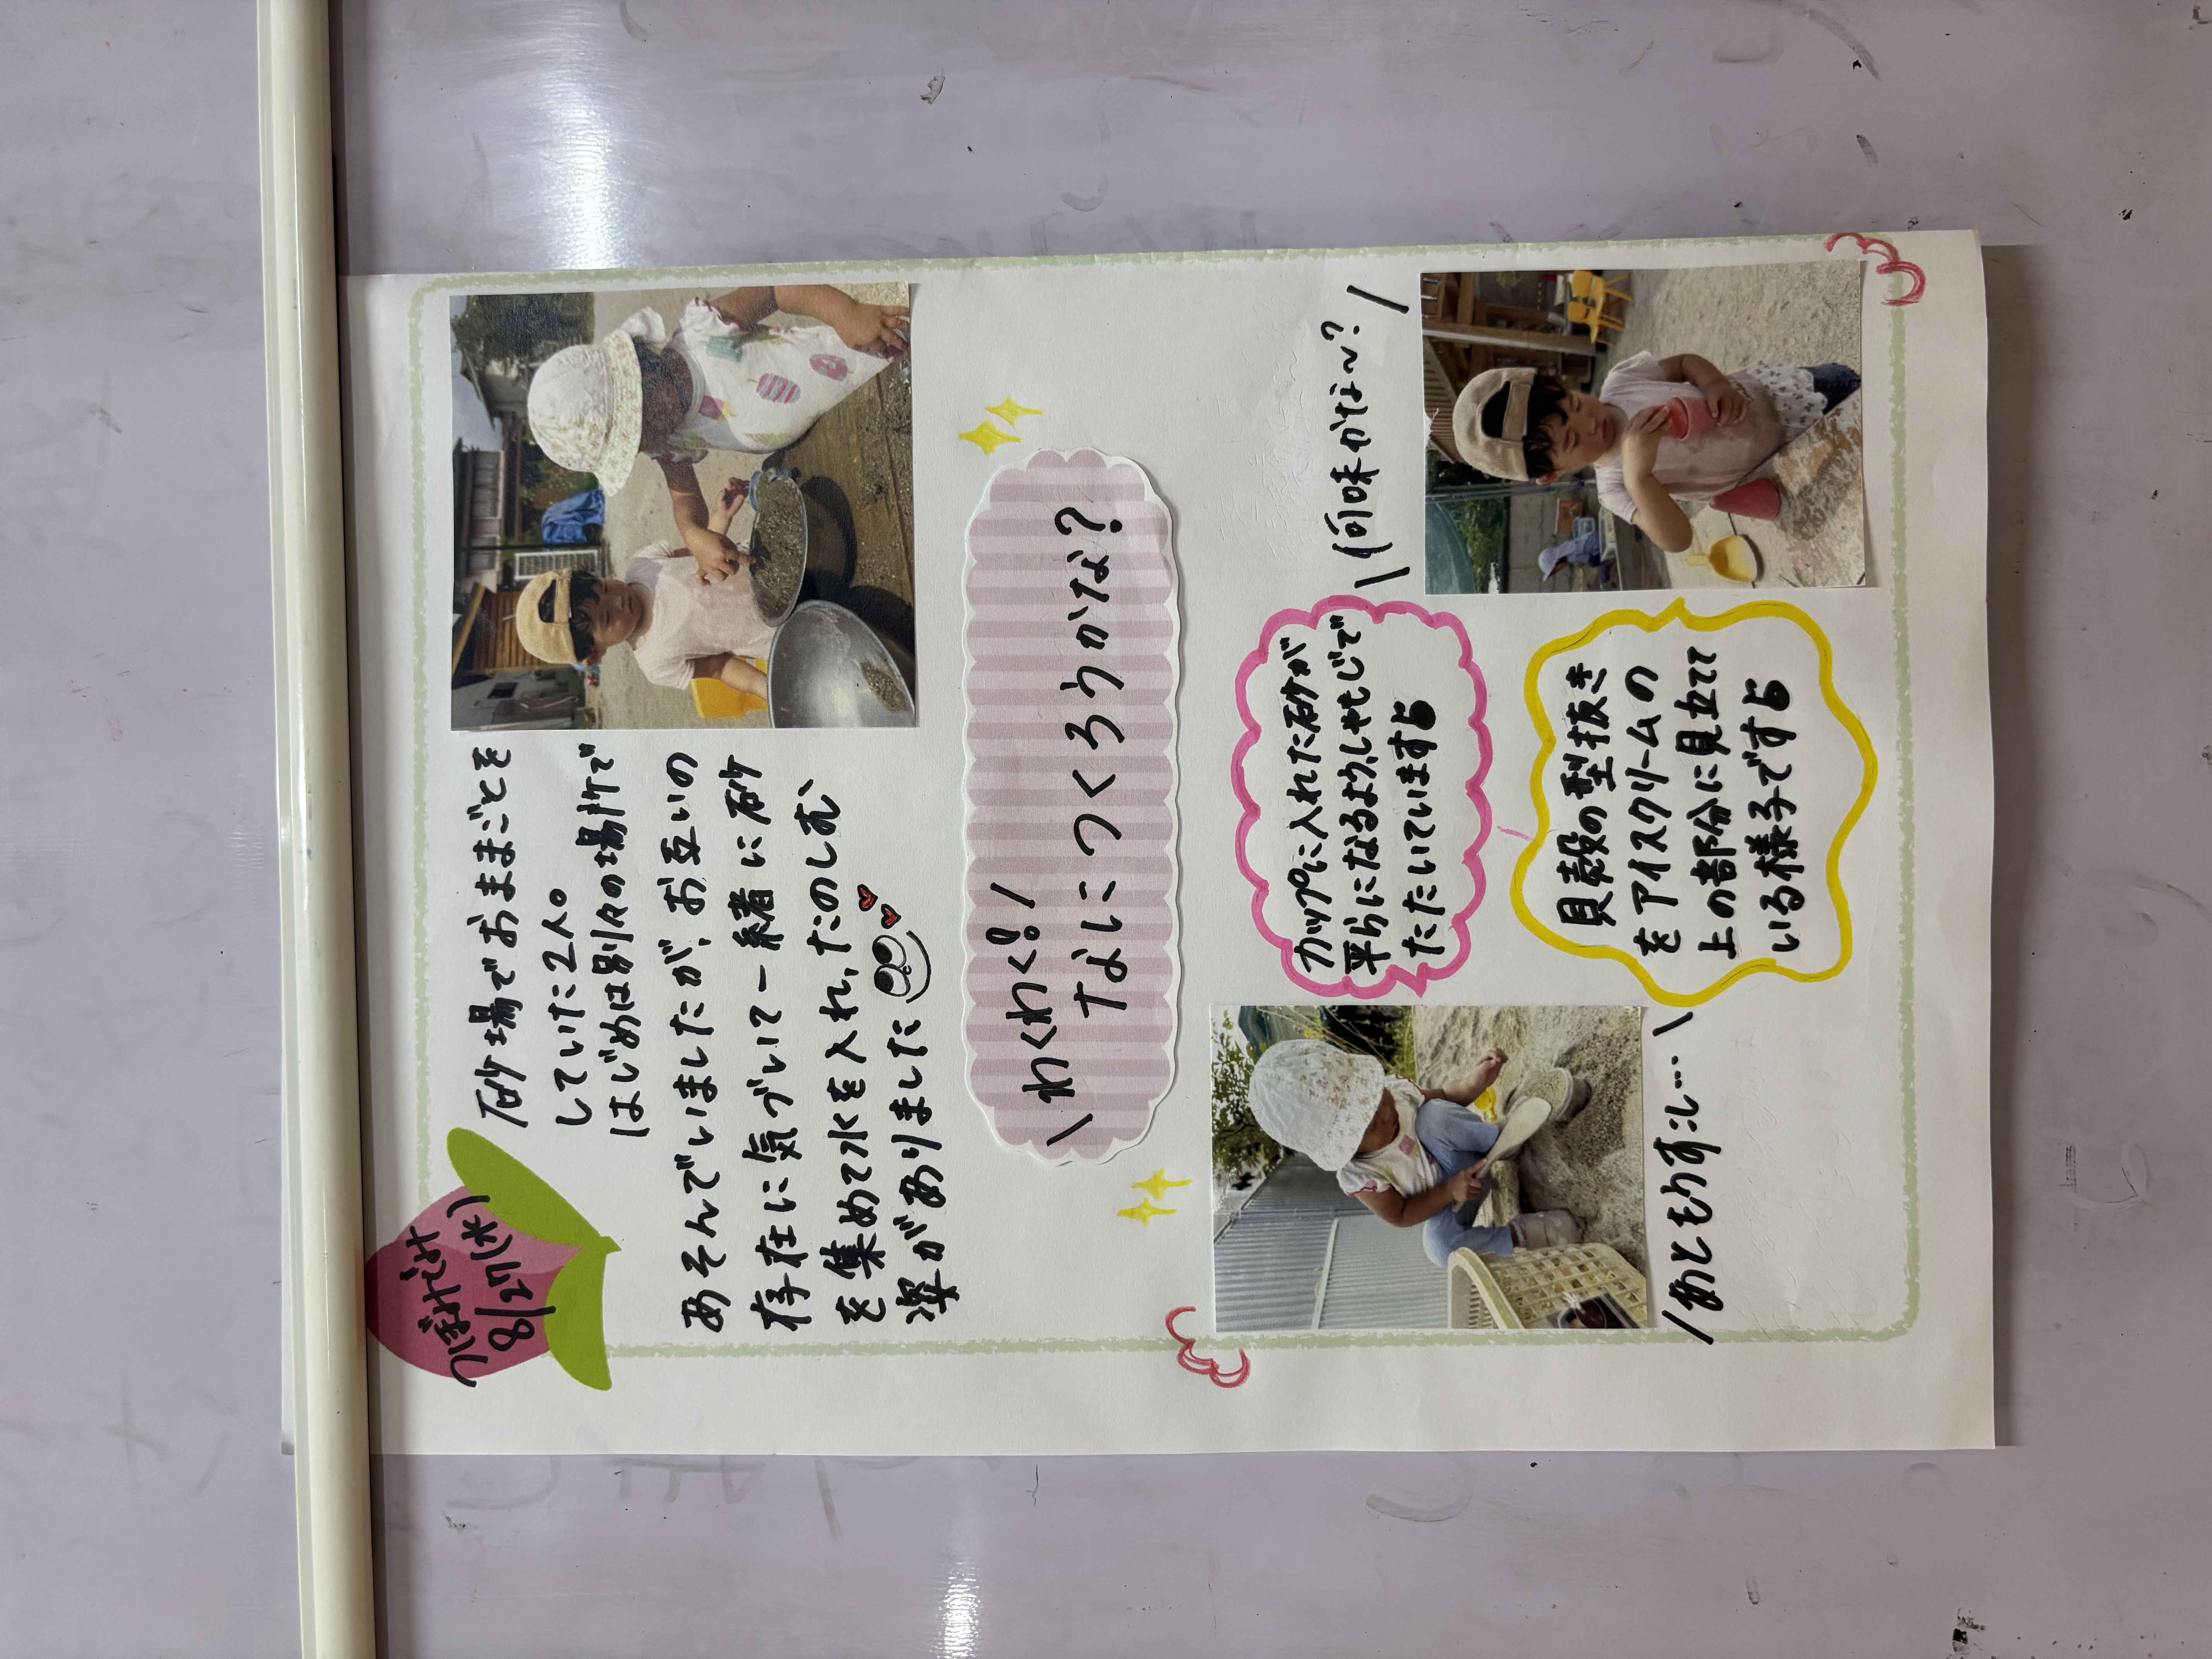 つぼみぐみ
8/27(水)
砂場でおままごとを
していた2人。
はじめは別々の場所で
あそんでいましたが、お互いの
存在に気づいて一緒に砂
を集めて水を入れ、たのしむ
姿がありました
\わくわく!/
なにつくろうかな?
\何味かな〜?/
カップに入れた砂が
平らになるよう、しゃもじで
たたいています
貝殻の型抜き
をアイスクリームの
上の部分に見立てて
いる様子です
/あともう少し…\